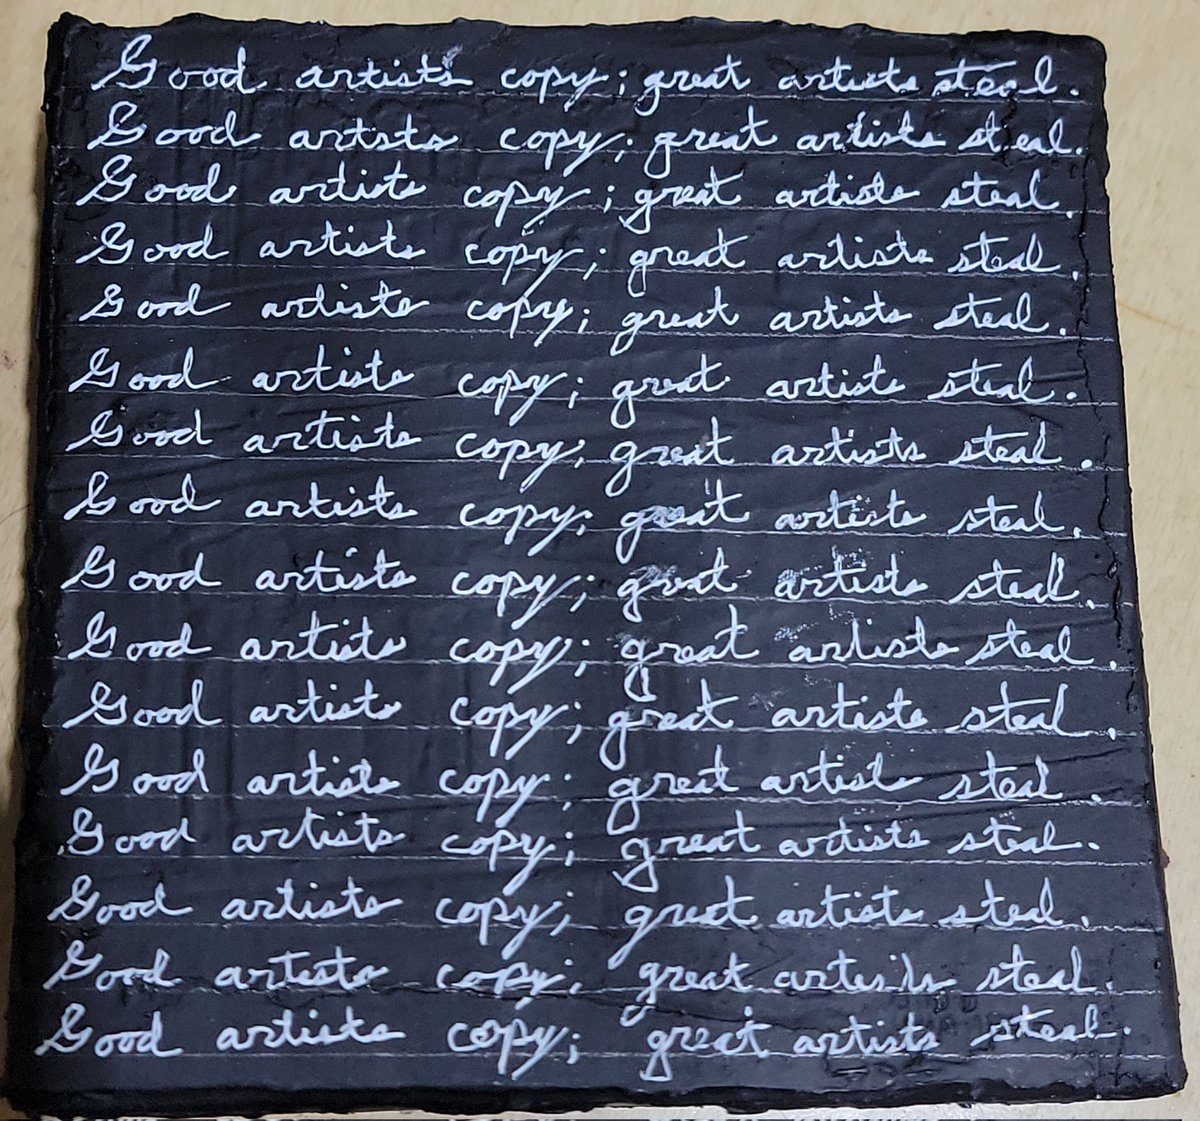 Good artists copy; great artists steal.
Good artsts copy; great artists steal.
Good artists copy; great artists steal.
Good artists copy; great artists steal.
Good artists copy; great artists steal.
Good artists copy; great artists steal.
Good artists copy; great artists steal.
Good artists copy; great artists steal.
Good artists copy; great artists steal.
Good artists copy; great artists steal.
Good artists copy; great artists steal.
Good artists copy; great artists steal.
Good artists copy; great artists steal.
Good artists copy; great artists steal.
Good artists copy; great artists steal.
Good artists copy; great artists steal.